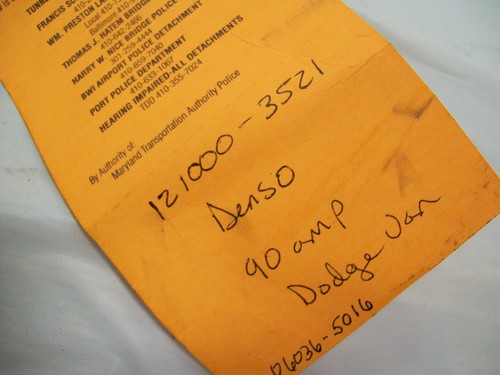 TUNNE
410-
FRANCIS SC
Local 410-
WM. PRESTON LA
Baltimore 410-
THOMAS J. HATEM BRIDGE
410-642-2466
HARRY W. NICE BRIDGE POLICE
301-259-4444
BWI AIRPORT POLICE DETACHMENT
410-859-7040
PORT POLICE DEPARTMENT
HEARING IMPAIRED-ALL DETACHMENTS
TDD 410-355-7024
By Authority of:
Maryland Transportation Authority Police
121000-3521
Denso
90 amp
Dodge Van
06036-5016